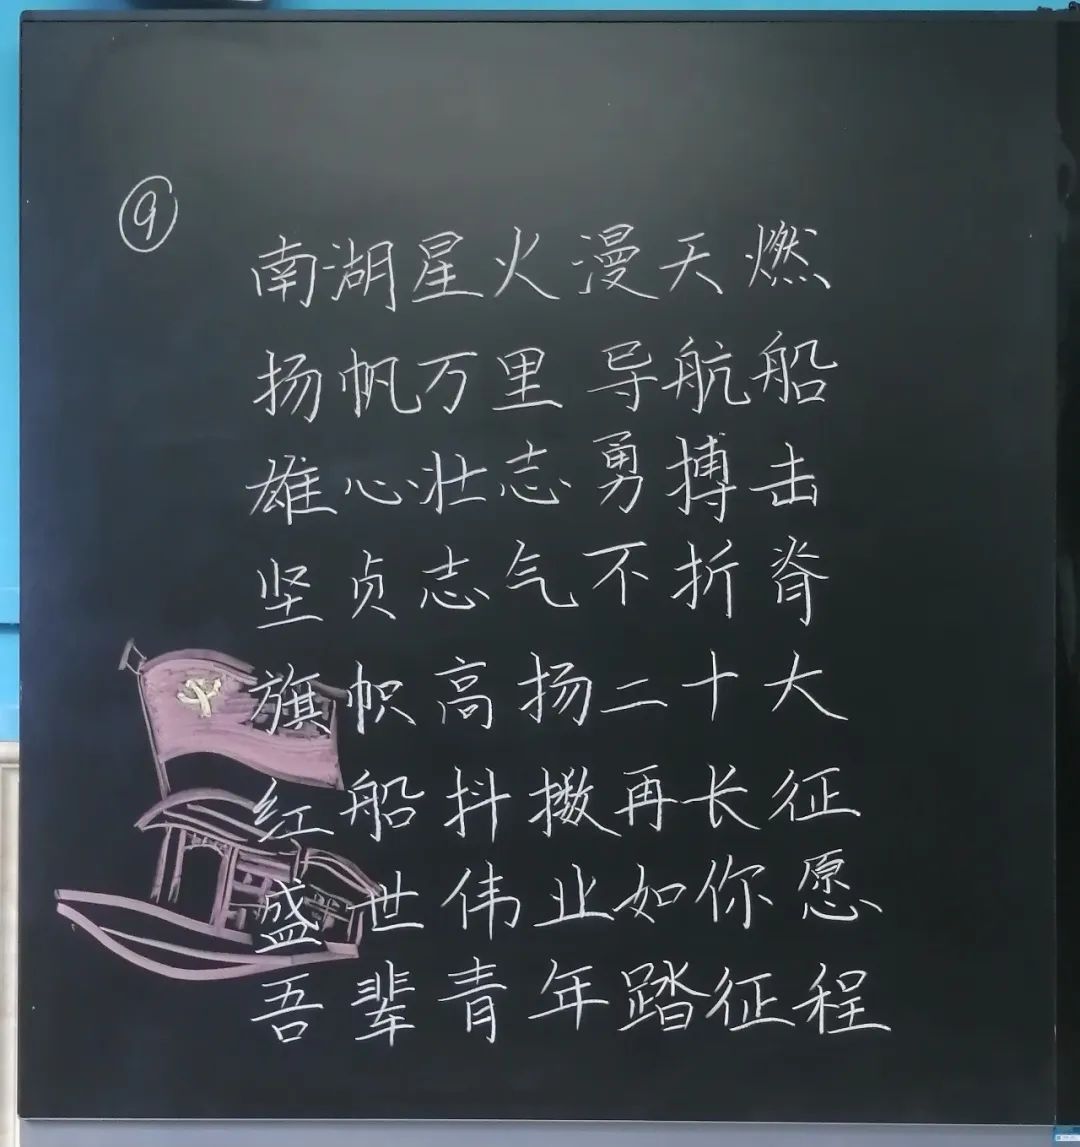 ⑨
南湖星火漫天燃
扬帆万里导航船
雄心壮志勇搏击
坚贞志气不折脊
旗帜高扬二十大
红船抖擞再长征
盛世伟业如你愿
吾辈青年踏征程